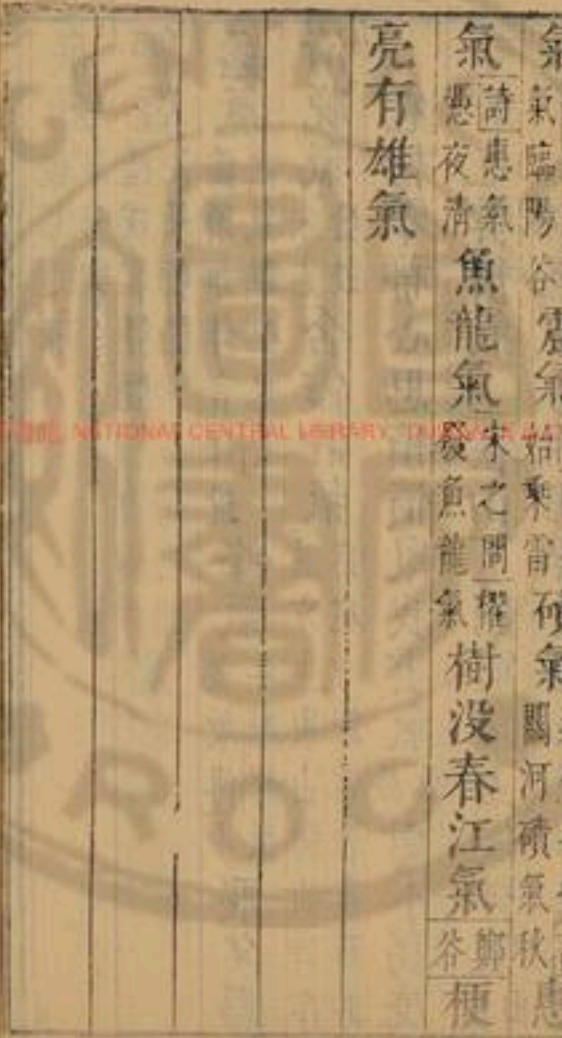 氣臨陽谷氣始乘氣關河磧氣秋惠
氣詩惠氣憑夜清魚龍氣宋之問櫂發魚龍氣樹没春江氣鄭谷梗
亮有雄氣
NATIONAL CENTRAL LIBRARY,